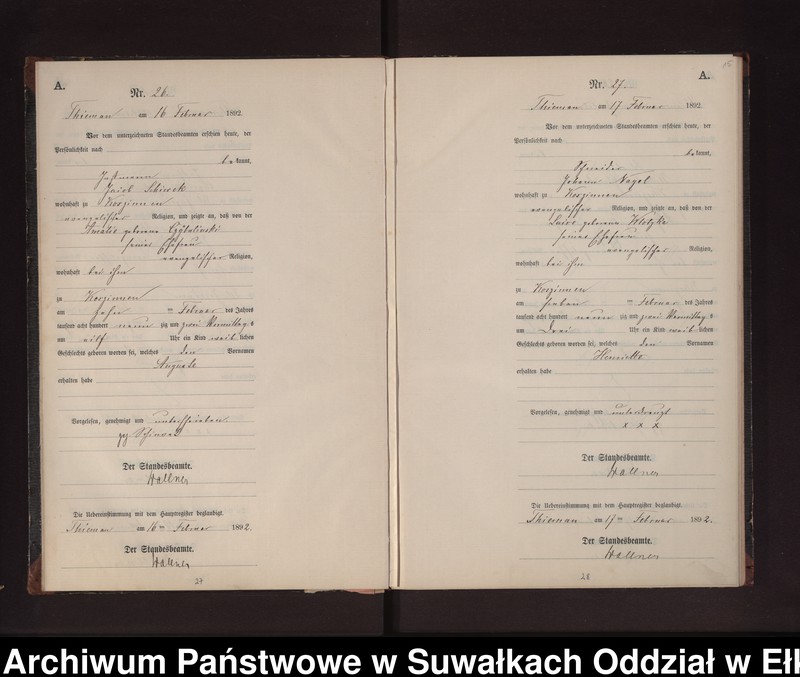 A.
Nr. 26.
Thieman am 16 Februar 1892.
Vor dem unterzeichneten Standesbeamten erschien heute, der
Persönlichkeit nach
be kannt,
wohnhaft zu Koszinnen
evangelischer Religion, und zeigte an, daß von der
Amalie geborene
seiner Ehefrau
evangelischer Religion,
wohnhaft bei ihm
zu Koszinnen
am zehn ten Februar des Jahres
tausend acht hundert neun zig und zwei Vormittags
um eilf Uhr ein Kind weib lichen
Geschlechts geboren worden sei, welches den Vornamen
Auguste
erhalten habe
Vorgelesen, genehmigt und unterschrieben
gz
Der Standesbeamte.
Hallner
Die Uebereinstimmung mit dem Hauptregister beglaubigt.
Thieman am 16ten Februar 1892.
Der Standesbeamte.
Hallner
27
A.
Nr. 27.
Thieman am 17 Februar 1892.
Vor dem unterzeichneten Standesbeamten erschien heute, der
Persönlichkeit nach
be kannt,
Schneider
Johann Nagel
wohnhaft zu Koszinnen
evangelischer Religion, und zeigte an, daß von der
geborene
seiner Ehefrau
evangelischer Religion,
wohnhaft bei ihm
zu Koszinnen
am sieben ten Februar des Jahres
tausend acht hundert neun zig und zwei Vormittags
um Drei Uhr ein Kind weib lichen
Geschlechts geboren worden sei, welches den Vornamen
Henriette
erhalten habe
Vorgelesen, genehmigt und unterkreuzt
x x x
Der Standesbeamte.
Hallner
Die Uebereinstimmung mit dem Hauptregister beglaubigt.
Thieman am 17ten Februar 1892.
Der Standesbeamte.
Hallner
28
Archiwum Państwowe w Suwałkach Oddział w Ełk